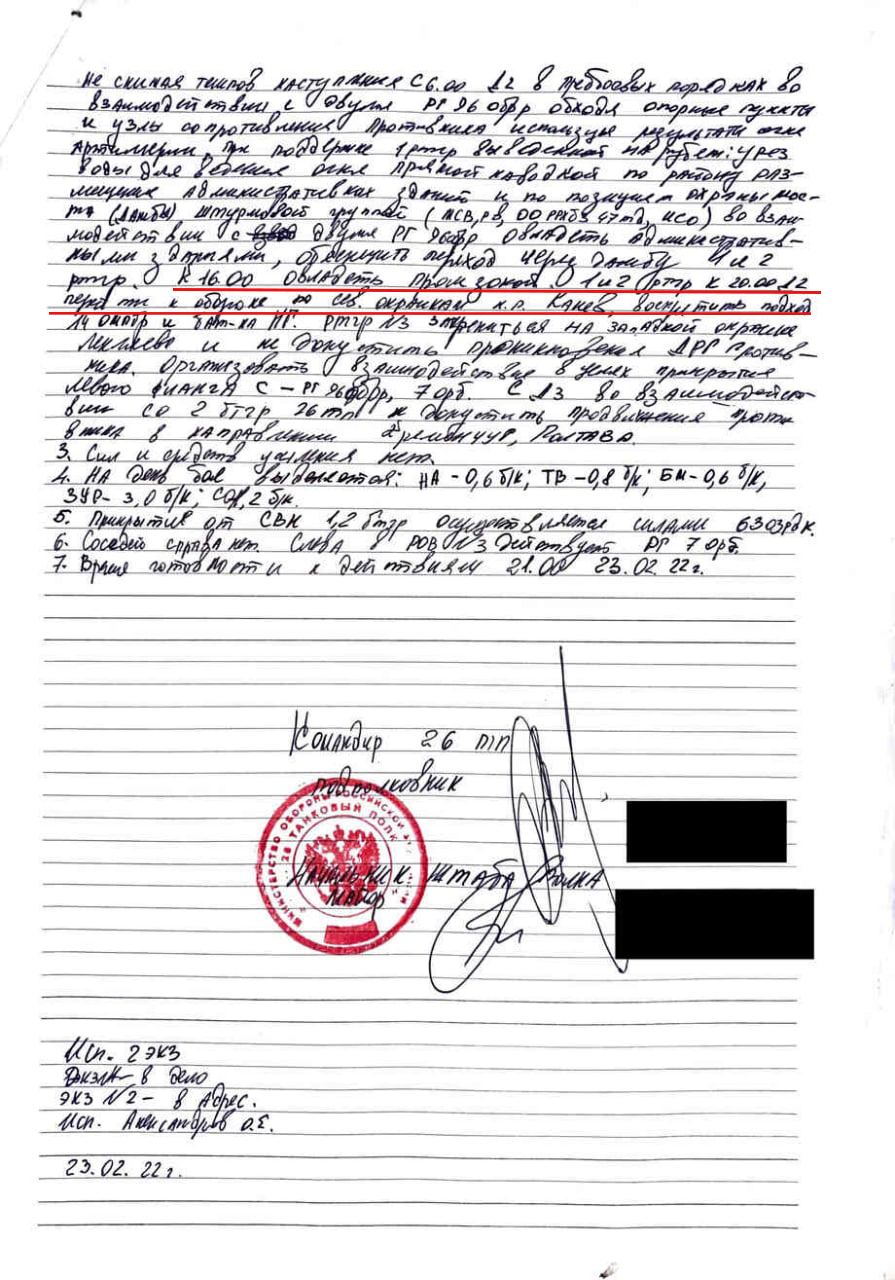 Не снижая темпов наступления С 6.00 Д2 в предбоевых порядках во
взаимодействии с двумя РГ 96 обрр обходя опорные пункты
и узлы сопротивления противника используя результаты огня
артиллерии, при поддержке 1 ртгр выведенной на рубеж: урез
воды для ведения огня прямой наводкой по району раз-
мещения административных зданий и по позициям охраны мос-
та (дамбы) штурмовой группой (МСВ, РВ, 47 тд, ИСО) во взаи-
модействии с двумя РГ 96 обрр овладеть административ-
ными зданиями, обеспечить переход через дамбу 1 и 2
ртгр. К 16.00 овладеть промзоной. 1 и 2 ртгр к 20.00 Д2
перейти к обороне по сев. окраинам н.п. Канев, воспретить подход
14 омбр и бат-на НГ. РТГР №3 на западной окраине
и не допустить проникновения ДРГ против-
ника. Организовать взаимодействие в целях прикрытия
левого фланга с – РГ 96 обрр, 7 орб. С Д3 во взаимодейст-
вии со 2 бтгр 26 тп не допустить продвижения проти
вника в направлении Кременчуг, Полтава.
3. Сил и средств усиления нет.
4. На день боя выделяется: НА – 0,6 б/к; ТВ – 0,8 б/к; БМ – 0,6 б/к,
ЗУР – 3,0 б/к; СО 1,2 б/к.
5. Прикрытие от СВН 1,2 бтгр осуществляется силами 63 озрдн.
6. Соседей справа нет. Слева в РОВ №3 действует РГ 7 орб.
7. Время готовности к действиям 21.00 23.02.22 г.
Командир 26 тп
подполковник
МИНИСТЕРСТВО ОБОРОНЫ РОССИЙСКОЙ ФЕДЕРАЦИИ
26 ТАНКОВЫЙ ПОЛК
Начальник штаба полка
майор
Исп. 2 экз
в дело
экз №2 – в адрес.
Исп. Александров О.Е.
23.02.22 г.